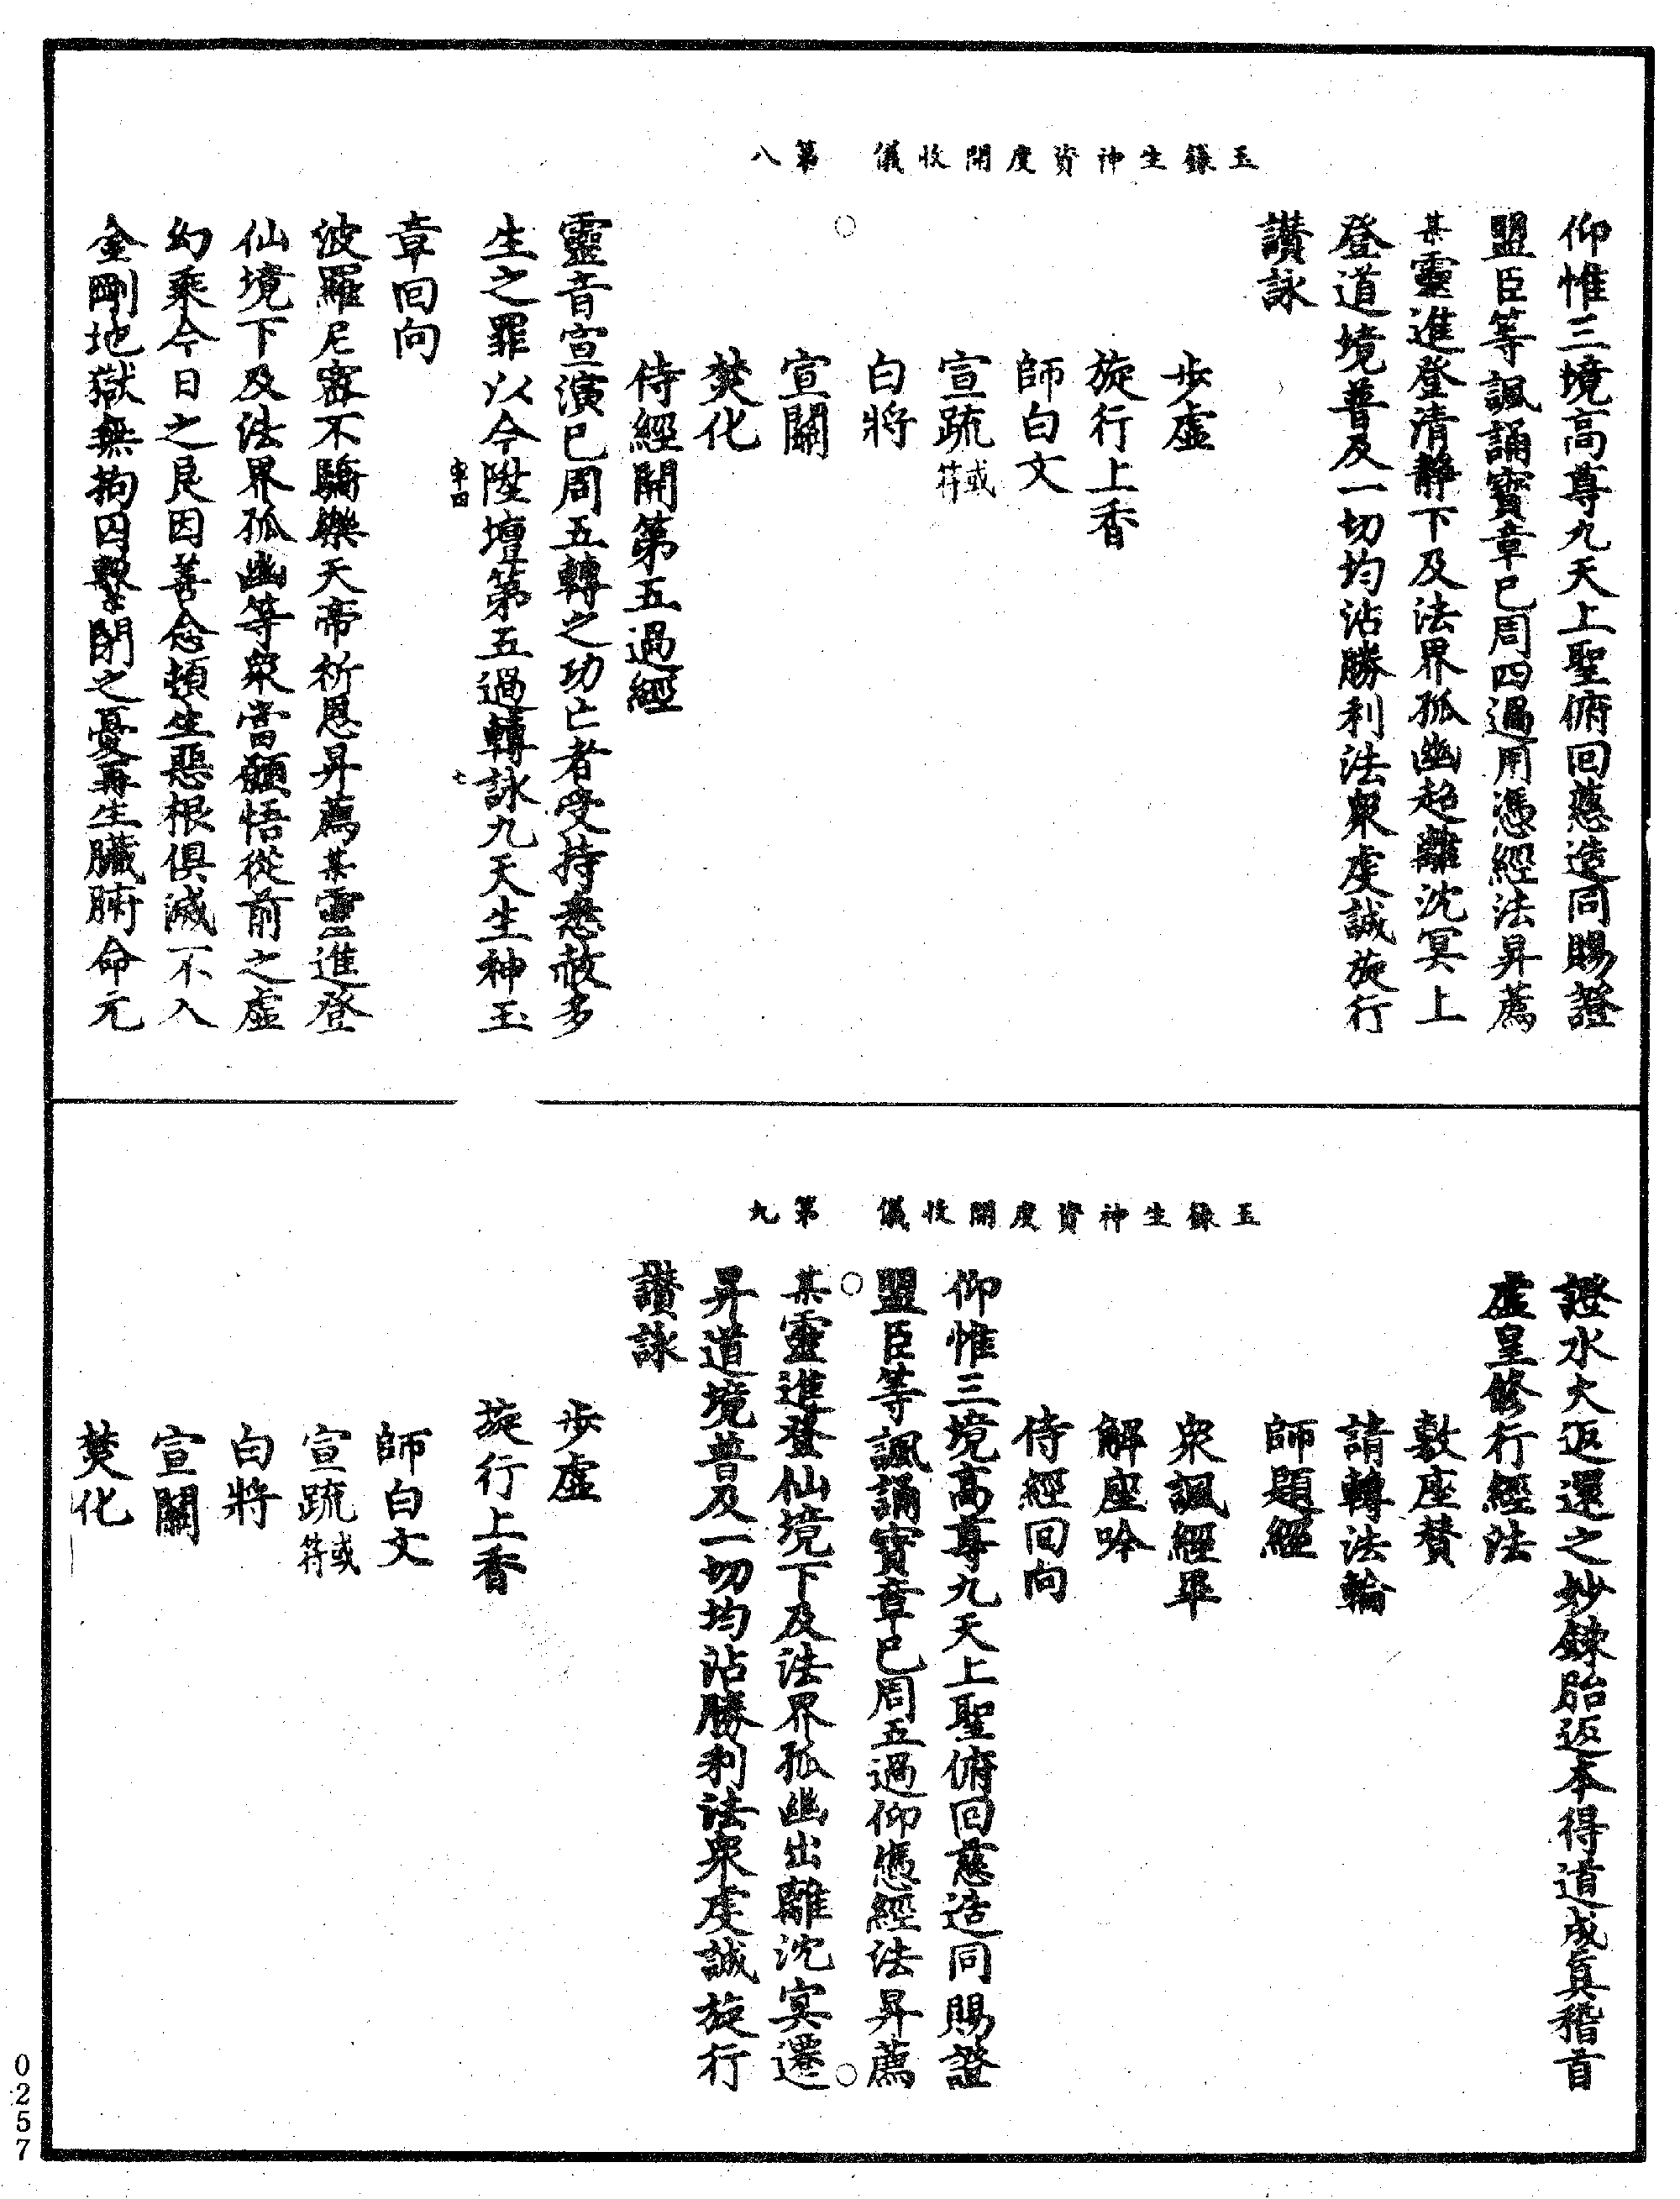 玉籙生神資度開收儀　第八
仰惟三境高尊九天上聖俯回慈造同賜證
盟臣等諷誦寶章已周四過用憑經法昇薦
某靈進登清靜下及法界孤幽超離沈冥上
登道境普及一切均沾勝利法衆虔誠旋行
讚詠
步虛
旋行上香
師白文
宣疏或符
白將
宣關
焚化
侍經開第五過經
靈音宣演已周五轉之功亡者受持悉赦多
生之罪以今陞壇第五過轉詠九天生神玉
章回向
波羅尼密不驕樂天帝祈恩昇薦某靈進登
仙境下及法界孤幽等衆當願悟從前之虛
幻乘今日之良因善念頓生惡根俱滅不入
金剛地獄無拘囚繫閉之憂再生臟腑命元
玉籙生神資度開收儀　第九
證水火返還之妙鍊胎返本得道成眞稽首
虛皇修行經法
敷座贊
請轉法輪
師題經
衆諷經畢
解座吟
侍經回向
仰惟三境高尊九天上聖俯回慈造同賜證
盟臣等諷誦寶章已周五過仰憑經法昇薦
某靈進登仙境下及法界孤幽出離沈冥遷
昇道境普及一切均沾勝利法衆虔誠旋行
讚詠
步虛
旋行上香
師白文
宣疏或符
白將
宣關
焚化
0257